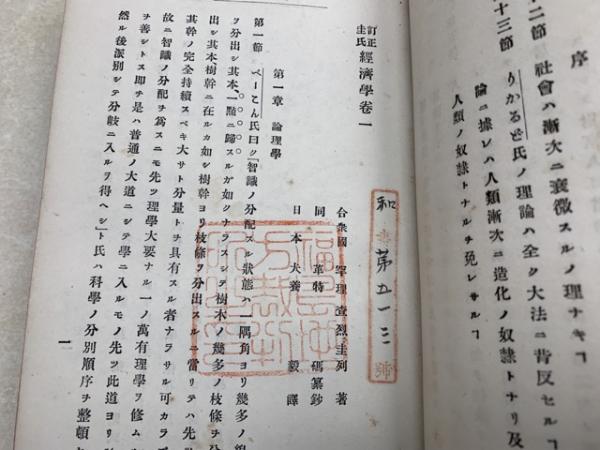 序
十二節 社會ハ漸次ニ衰微スルノ理ナキヿ
十三節 りかるど氏ノ理論ハ全ク大法ニ背反セルヿ
論ニ據レハ人類漸次ニ造化ノ奴隷トナリ及
人類ノ奴隷トナルヲ免レサルヿ
訂正
圭氏 經濟學卷一
合衆國 理 烈圭列 著
同 革特 碼 纂鈔
日本 犬養 毅 譯
和 第五一三 號
福島地方裁判所
第一章 論理學
第一節 べーこん氏曰ク『智識ノ分配スル狀態ハ一隅角ヨリ幾多ノ線
ヲ分出シ其本一點ニ歸スルガ如クナラスシテ樹木ノ幾多ノ枝條ヲ分
出シ其本樹幹ニ在ルカ如シ樹幹ヨリ枝條ヲ分出スルニ當リテハ先ツ
其幹ノ完全持續スベキ大サト分量トヲ具有スル者ナラサル可カラ
故ニ智識ノ分配ヲ爲スニモ先ツ理學大要ナル一ノ萬有理學ヲ修ム
ヲ善シトス即チ是ハ普通ノ大道ニシテ學ニ入ルモノ先ツ此道ヨリ
然ル後派別シテ分岐ニ入ルヲ得ヘシ』ト氏ハ科學ノ分別順序ヲ整頓
一